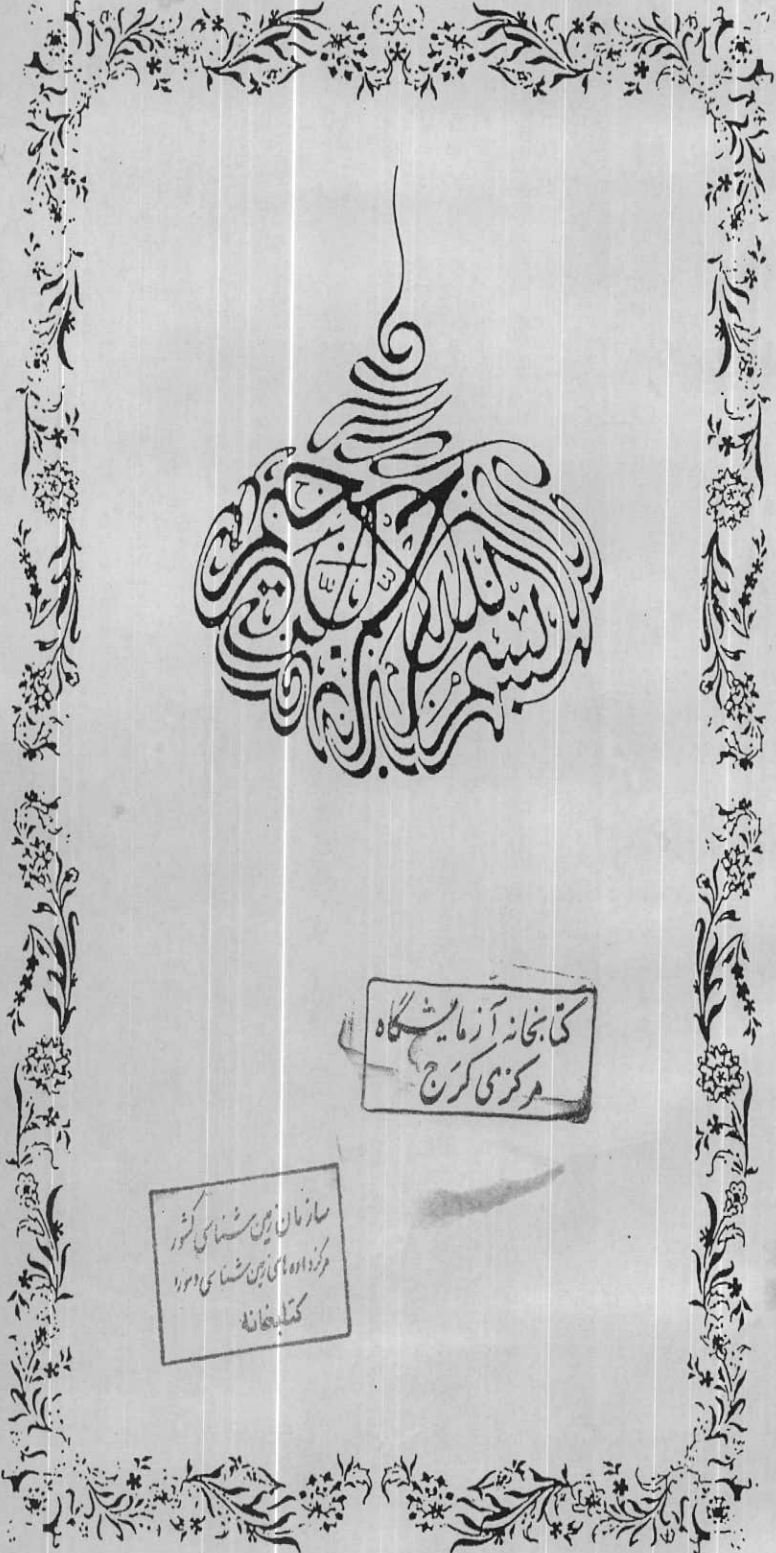 بسم الله الرحمن الرحیم
کتابخانه آزمایشگاه
مرکزی کرج
سازمان زمین شناسی کشور
مرکز داده های زمین شناسی
کتابخانه